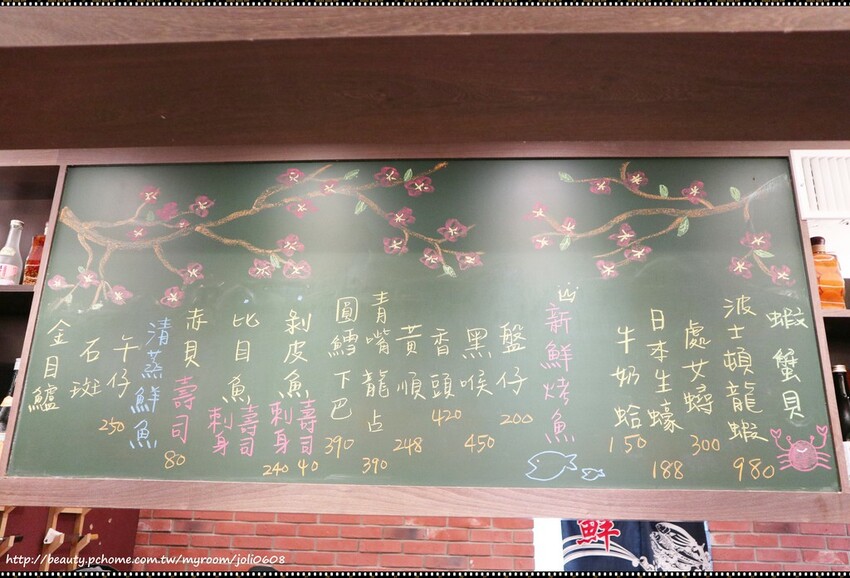 蝦蟹貝
波士頓龍蝦
980
處女蟳
300
日本生蠔
188
牛奶蛤
150
新鮮烤魚
盤仔
200
黑喉
450
香頭
420
黃順
248
青嘴龍占
390
圓鱈下巴
390
剝皮魚
壽司
40
刺身
240
比目魚
壽司
刺身
赤貝
壽司
80
清蒸鮮魚
午仔
250
石斑
金目鱸
鮮
http://beauty.pchome.com.tw/myroom/joli0608